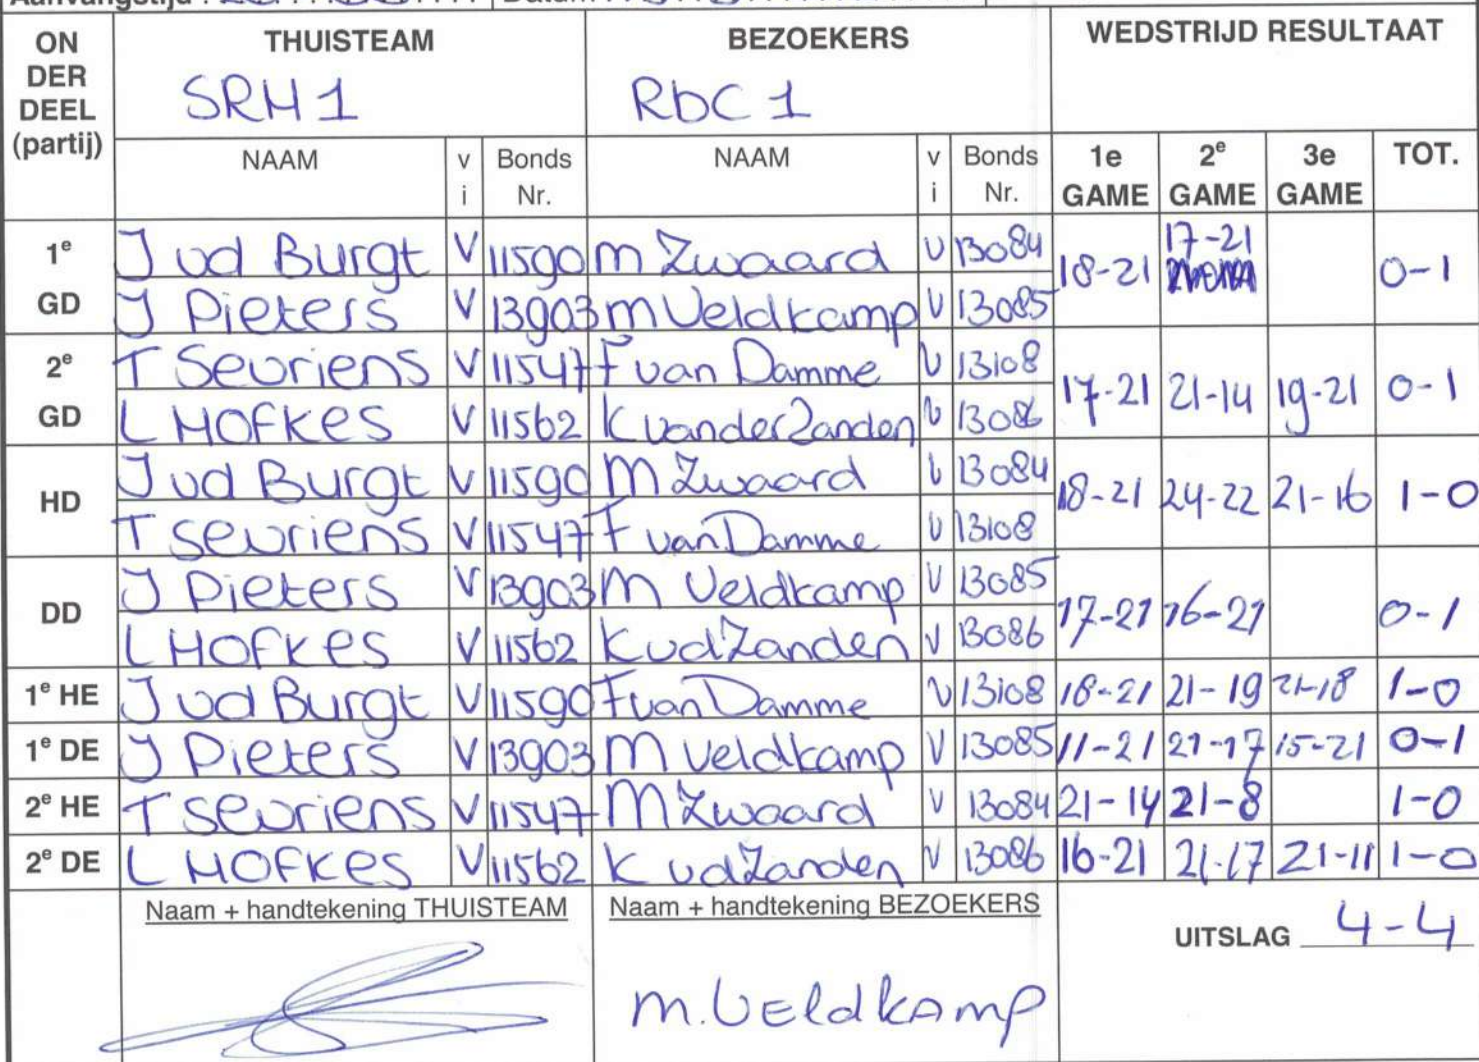 Aanvangstijd :
ON DER DEEL (partij) THUISTEAM BEZOEKERS WEDSTRIJD RESULTAAT
SRH 1 RbC 1
NAAM v i Bonds Nr. NAAM v i Bonds Nr. 1e GAME 2e GAME 3e GAME TOT.
1e GD J vd Burgt V 11590 M Zwaard V 13084 18-21 17-21 0-1
J Pieters V 13903 M Veldkamp V 13085
2e GD T Sevriens V 11547 F van Damme V 13108 17-21 21-14 19-21 0-1
L HOFKES V 11562 K vander Zanden V 13086
HD J vd Burgt V 11590 M Zwaard V 13084 18-21 24-22 21-16 1-0
T Sevriens V 11547 F van Damme V 13108
DD J Pieters V 13903 M Veldkamp V 13085 17-21 16-21 0-1
L HOFKES V 11562 K vd Zanden V 13086
1e HE J vd Burgt V 11590 F van Damme V 13108 18-21 21-19 21-18 1-0
1e DE J Pieters V 13903 M Veldkamp V 13085 11-21 21-17 15-21 0-1
2e HE T Sevriens V 11547 M Zwaard V 13084 21-14 21-8 1-0
2e DE L HOFKES V 11562 K vd Zanden V 13086 16-21 21-17 21-11 1-0
Naam + handtekening THUISTEAM Naam + handtekening BEZOEKERS
UITSLAG 4-4
M. VEldkAmp